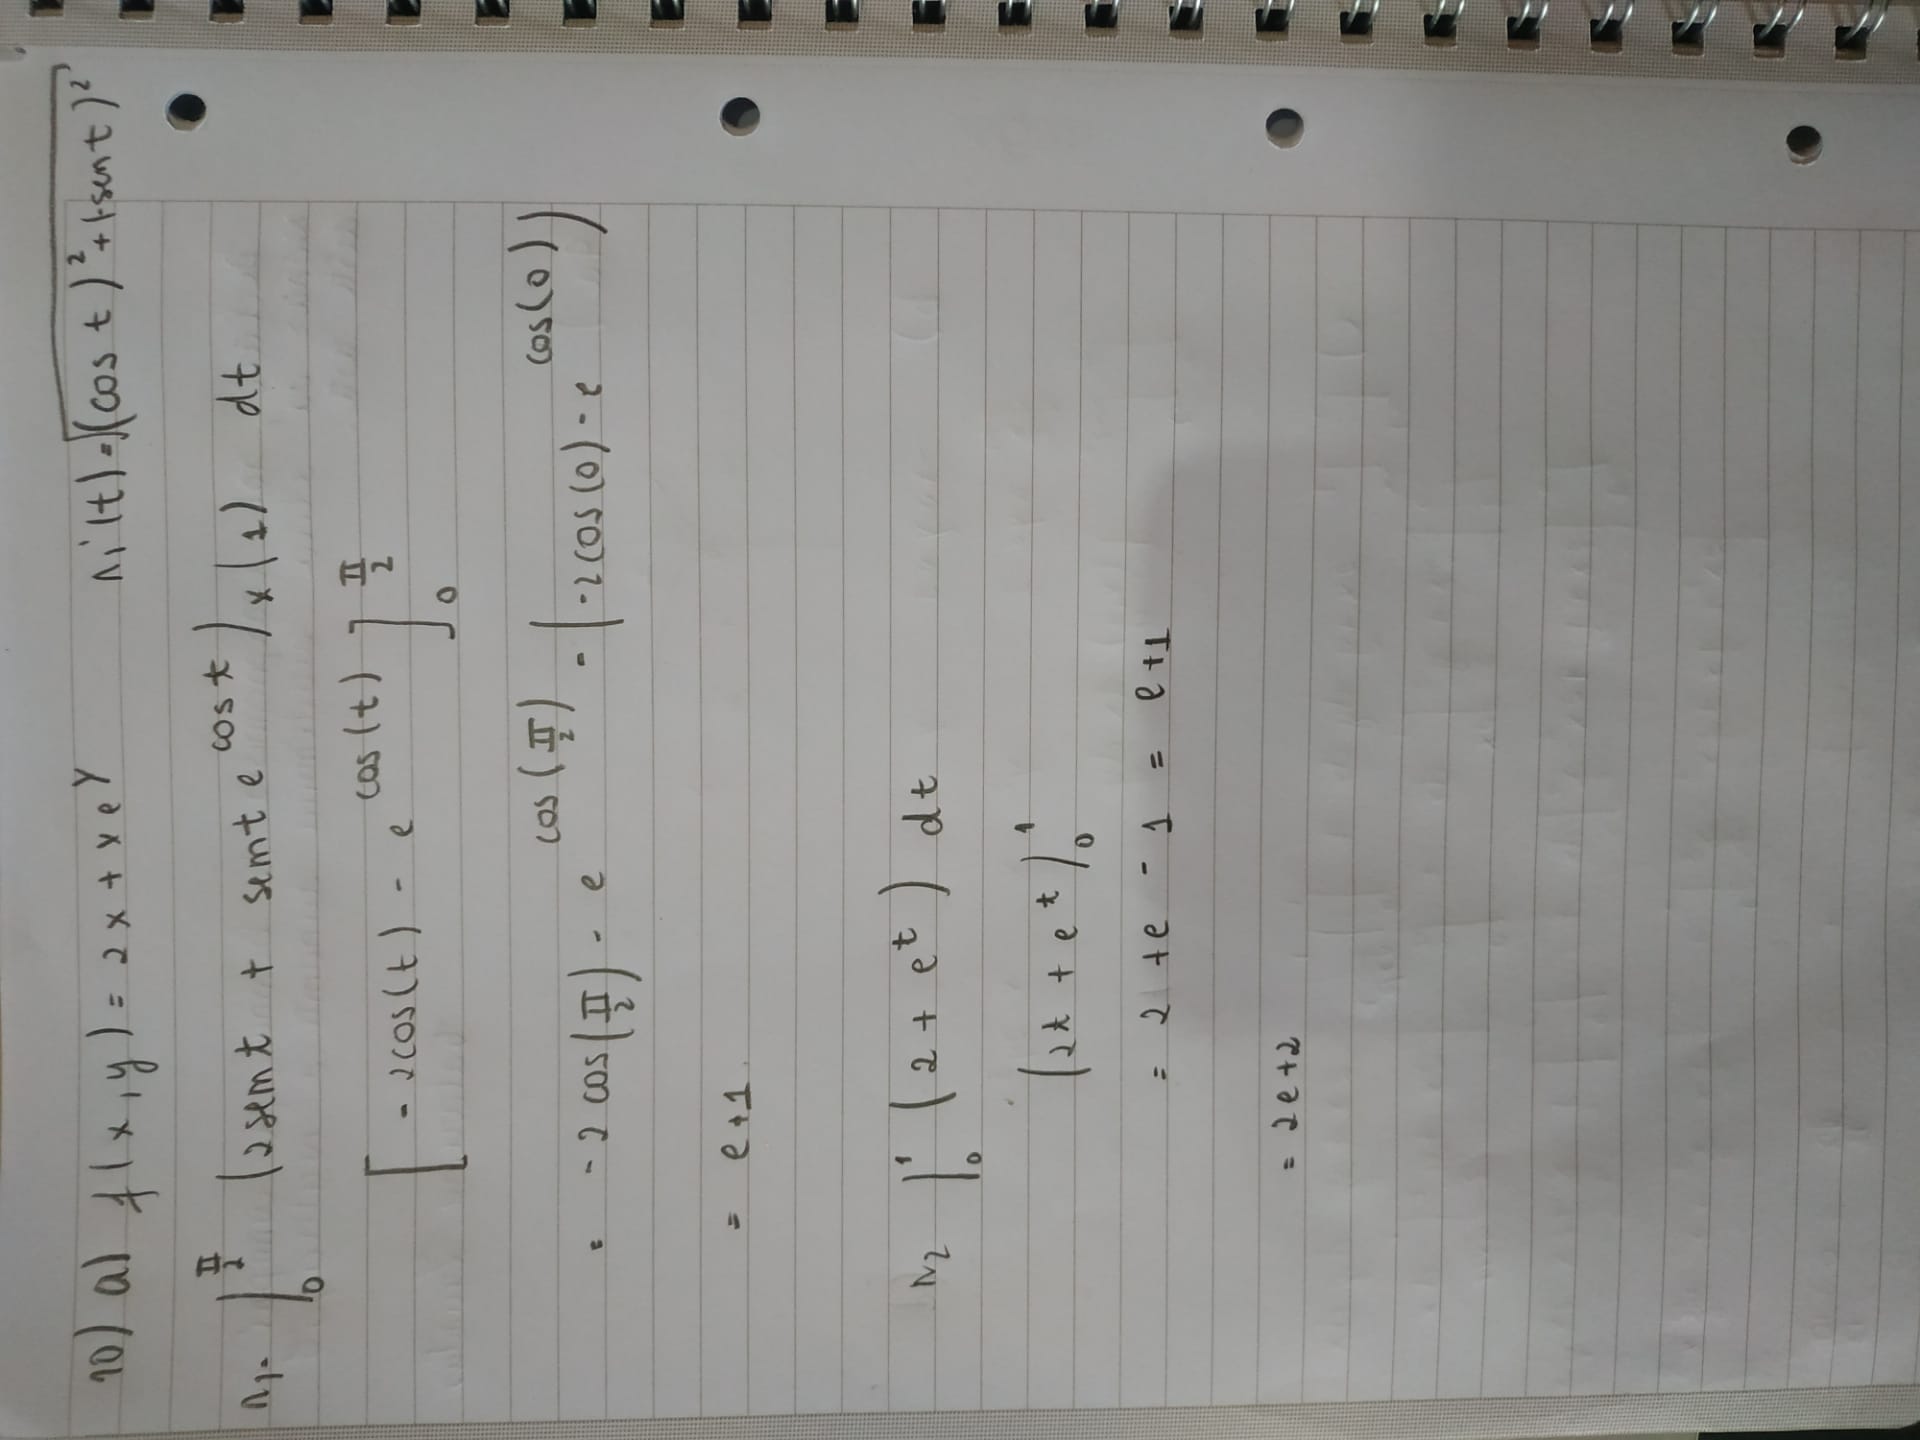 10) a) f(x,y) = 2x + xe^y r1'(t) = √((cos t)² + (-sen t)²)
r1 = ∫_0^{π/2} (2sent + sent e^{cost}) x (1) dt
[-2cos(t) - e^{cos(t)}]_0^{π/2}
= -2cos(π/2) - e^{cos(π/2)} - (-2cos(0) - e^{cos(0)})
= e+1
r2 ∫_0^1 (2 + e^t) dt
(2t + e^t)_0^1
= 2 + e - 1 = e+1
= 2e+2